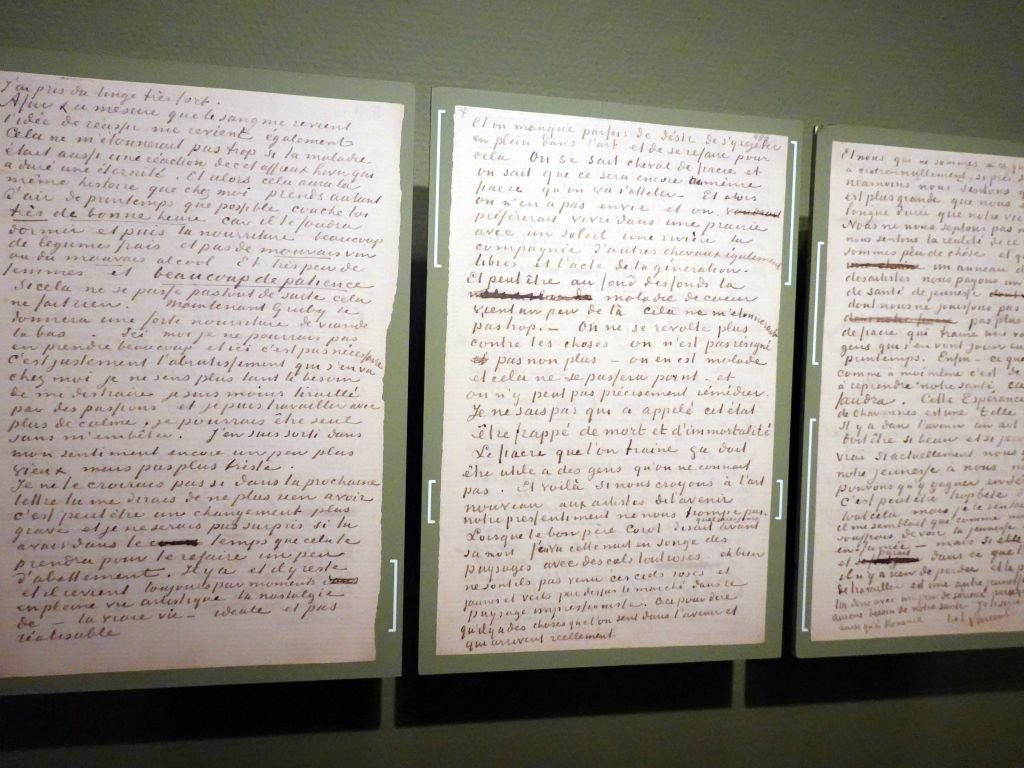 J'ai pris du linge très fort.
A fur & a mesure que le sang me revient
l'idée de reussir me revient également
Cela ne m'étonnerait pas trop si ta maladie
était aussi une réaction de cet affreux hiver qui
a duré une éternité. Et alors cela aura la
même histoire que chez moi prends autant
d'air de printemps que possible couche toi
très de bonne heure car il te faudra
dormir et puis ta nourriture beaucoup
de legumes frais et pas de mauvais vin
ou du mauvais alcool Et très peu de
femmes et beaucoup de patience
Si cela ne se passe pas tout de suite cela
ne fait rien. Maintenant Gruby te
donnera une forte nourriture de viande
là bas. Ici moi je ne pourrais pas
en prendre beaucoup et ici c'est pas nécessaire
C'est justement l'abrutissement qui s'en va
chez moi je ne sens plus tant le besoin
de me distraire je suis moins tiraillé
par des passions et je puis travailler avec
plus de calme, je pourrais être seul
sans m'embêter. J'en suis sorti dans
mon sentiment encore un peu plus
vieux mais pas plus triste.
Je ne te croirais pas si dans ta prochaine
lettre tu me dirais de ne plus rien avoir
c'est peut être un changement plus
grave et je ne serais pas surpris si tu
avais dans le temps que cela te
prendra pour te refaire un peu
d'abattement. Il y a et il y reste
et il revient toujours par moments
en pleine vie artistique la nostalgie
de – la vraie vie – idéale et pas
réalisable
Et on manque parfois de désir de s'y rejeter
en plein dans l'art et de se refaire pour
cela On se sait cheval de fiacre et
on sait que ce sera encore au même
fiacre qu'on va s'atteler. Et alors
on n'en a pas envie et on
préférerait vivre dans une prairie
avec un soleil une rivière la
compagnie d'autres chevaux également
libres et l'acte de la génération.
Et peut être au fond des fonds ta
maladie de coeur
vient un peu de là cela ne m'étonnerait
pas trop. – On ne se révolte plus
contre les choses on n'est pas résigné
pas non plus – on en est malade
et cela ne se passera point – et
on n'y peut pas précisement remédier.
Je ne sais pas qui a appelé cet état
être frappé de mort et d'immortalité
Le fiacre que l'on traine ça doit
être utile a des gens qu'on ne connait
pas. Et voilà si nous croyons à l'art
nouveau aux artistes de l'avenir
notre pressentiment ne nous trompe pas.
Lorsque le bon père Corot disait quelques jours avant
sa mort j'ai vu cette nuit en songe des
paysages avec des ciels tout roses et bien
ne sont ils pas venu ces ciels roses et
jaunes et verts par dessus le marché dans le
paysage impressioniste. Ceci pour dire
qu'il y a des choses que l'on sent dans l'avenir et
qui arrivent réellement.
Et nous qui ne sommes
à cela nullement si près
néanmoins nous sentons
est plus grande que nous
longue durée que notre vie
Nous ne nous sentons pas
nous sentons la réalité de ce
sommes peu de chose et
un anneau
des artistes nous payons un
de santé de jeunesse
dont nous jouissons pas
pas plus
de fiacre qui traine
gens qui s'en vont jouir
printemps. Enfin – ce que
comme a moi même c'est de
à reprendre notre santé car
faudra. Cette Espérance
de Chavannes est une telle
Il y a dans l'avenir un art
doit être si beau et si jeune
vrai si actuellement nous
notre jeunesse à nous nous
pouvons qu'y gagner en sérénité
C'est peut être trop bête
tout cela mais je le sentais
il me semblait que comme
souffrais de voir ta jeunesse
en fumée – mais si elle
et dans ce que l'
il n'y a rien de perdu et la
de travailler est une autre jeunesse